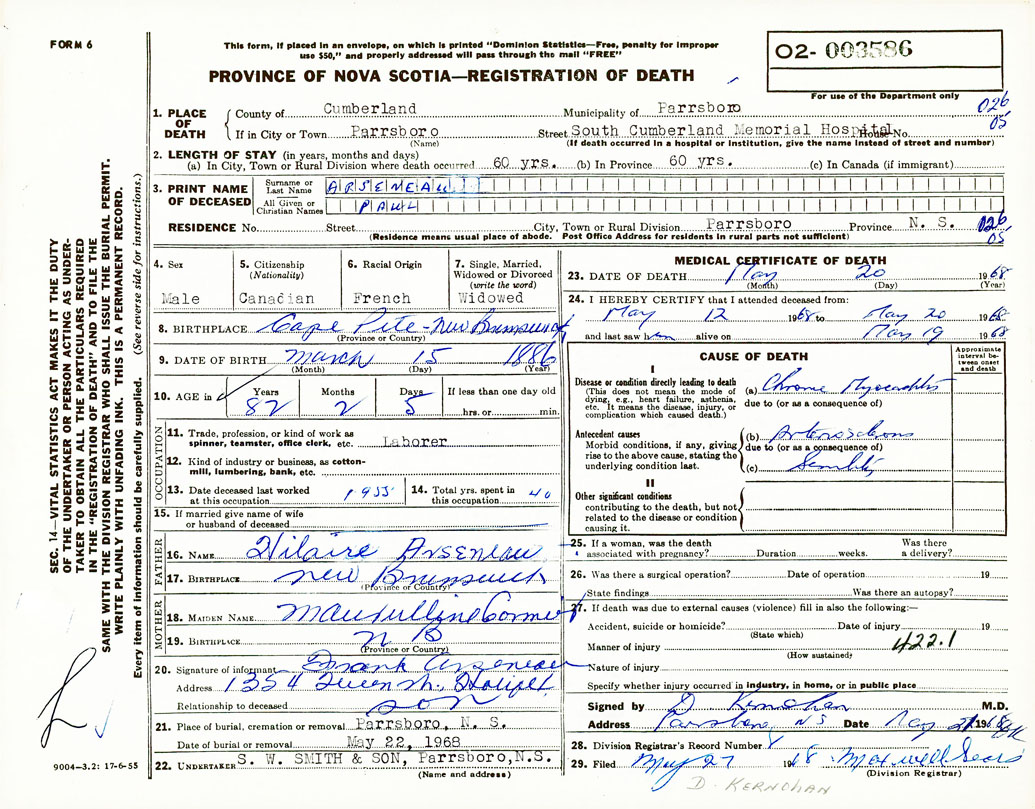 FORM 6
This form, if placed in an envelope, on which is printed "Dominion Statistics—Free, penalty for improper
use $50," and properly addressed will pass through the mail "FREE"
PROVINCE OF NOVA SCOTIA—REGISTRATION OF DEATH
02- 003586
For use of the Department only
026
05
1. PLACE OF DEATH
County of Cumberland Municipality of Parrsboro
If in City or Town Parrsboro Street South Cumberland Memorial Hospital House No.
(Name) (If death occurred in a hospital or institution, give the name instead of street and number)
2. LENGTH OF STAY (in years, months and days)
(a) In City, Town or Rural Division where death occurred 60 yrs. (b) In Province 60 yrs. (c) In Canada (if immigrant)
3. PRINT NAME OF DECEASED
Surname or Last Name ARSENEAU
All Given or Christian Names PAUL
RESIDENCE No. Street City, Town or Rural Division Parrsboro Province N. S. 026
(Residence means usual place of abode. Post Office Address for residents in rural parts not sufficient) 05
4. Sex
Male
5. Citizenship
(Nationality)
Canadian
6. Racial Origin
French
7. Single, Married,
Widowed or Divorced
(write the word)
Widowed
8. BIRTHPLACE Cape Pele - New Brunswick
(Province or Country)
9. DATE OF BIRTH March 15 1886
(Month) (Day) (Year)
10. AGE in
Years Months Days If less than one day old
82 2 5 hrs. or min.
OCCUPATION
11. Trade, profession, or kind of work as
spinner, teamster, office clerk, etc. Laborer
12. Kind of industry or business, as cotton-
mill, lumbering, bank, etc.
13. Date deceased last worked
at this occupation 1955
14. Total yrs. spent in
this occupation 40
15. If married give name of wife
or husband of deceased
FATHER
16. NAME Hilaire Arseneau
17. BIRTHPLACE New Brunswick
(Province or Country)
MOTHER
18. MAIDEN NAME Cormier
19. BIRTHPLACE N B
(Province or Country)
20. Signature of informant Frank Arseneau
Address 1354 Queen St., Halifax
Relationship to deceased son
21. Place of burial, cremation or removal Parrsboro, N. S.
Date of burial or removal May 22, 1968
22. UNDERTAKER S. W. SMITH & SON, Parrsboro,N.S.
(Name and address)
MEDICAL CERTIFICATE OF DEATH
23. DATE OF DEATH May 20 1968
(Month) (Day) (Year)
24. I HEREBY CERTIFY that I attended deceased from:
May 12 1968 to May 20 1968
and last saw him alive on May 19 1968
CAUSE OF DEATH
Approximate
interval be-
tween onset
and death
I
Disease or condition directly leading to death
(This does not mean the mode of
dying, e.g., heart failure, asthenia,
etc. It means the disease, injury, or
complication which caused death.)
(a) Chronic Myocarditis
due to (or as a consequence of)
Antecedent causes
Morbid conditions, if any, giving
rise to the above cause, stating the
underlying condition last.
(b)
due to (or as a consequence of)
(c) Senility
II
Other significant conditions
contributing to the death, but not
related to the disease or condition
causing it.
25. If a woman, was the death
associated with pregnancy? Duration weeks. Was there
a delivery?
26. Was there a surgical operation? Date of operation 19
State findings Was there an autopsy?
27. If death was due to external causes (violence) fill in also the following:—
Accident, suicide or homicide? Date of injury 19
(State which)
Manner of injury 422.1
(How sustained)
Nature of injury
Specify whether injury occurred in industry, in home, or in public place
Signed by D Kernohan M.D.
Address Parrsboro, NS Date May 21 1968
28. Division Registrar's Record Number
29. Filed May 27 1968 Maxwell Sears
(Division Registrar)
D. KERNOHAN
SEC. 14—VITAL STATISTICS ACT MAKES IT THE DUTY
OF THE UNDERTAKER OR PERSON ACTING AS UNDER-
TAKER TO OBTAIN ALL THE PARTICULARS REQUIRED
IN THE "REGISTRATION OF DEATH" AND TO FILE THE
SAME WITH THE DIVISION REGISTRAR WHO SHALL ISSUE THE BURIAL PERMIT.
WRITE PLAINLY WITH UNFADING INK. THIS IS A PERMANENT RECORD.
Every item of information should be carefully supplied. (See reverse side for instructions.)
9004-3.2: 17-6-55